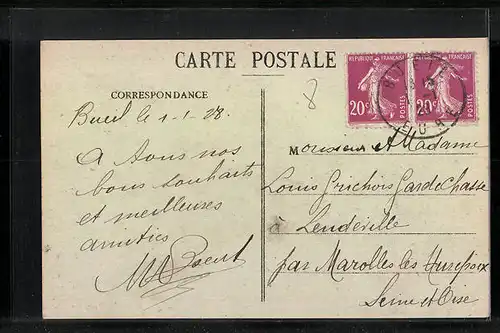 CARTE POSTALE
RÉPUBLIQUE FRANÇAISE
20c
POSTES
RÉPUBLIQUE FRANÇAISE
20c
POSTES
EURE
8
CORRESPONDANCE
Bueil le 1-1-28.
A tous nos
bons souhaits
et meilleures
amitiés
Monsieur et Madame
Louis Grichois Garde Chasse
à Leudeville
par Marolles les Hurepoix
Seine et Oise